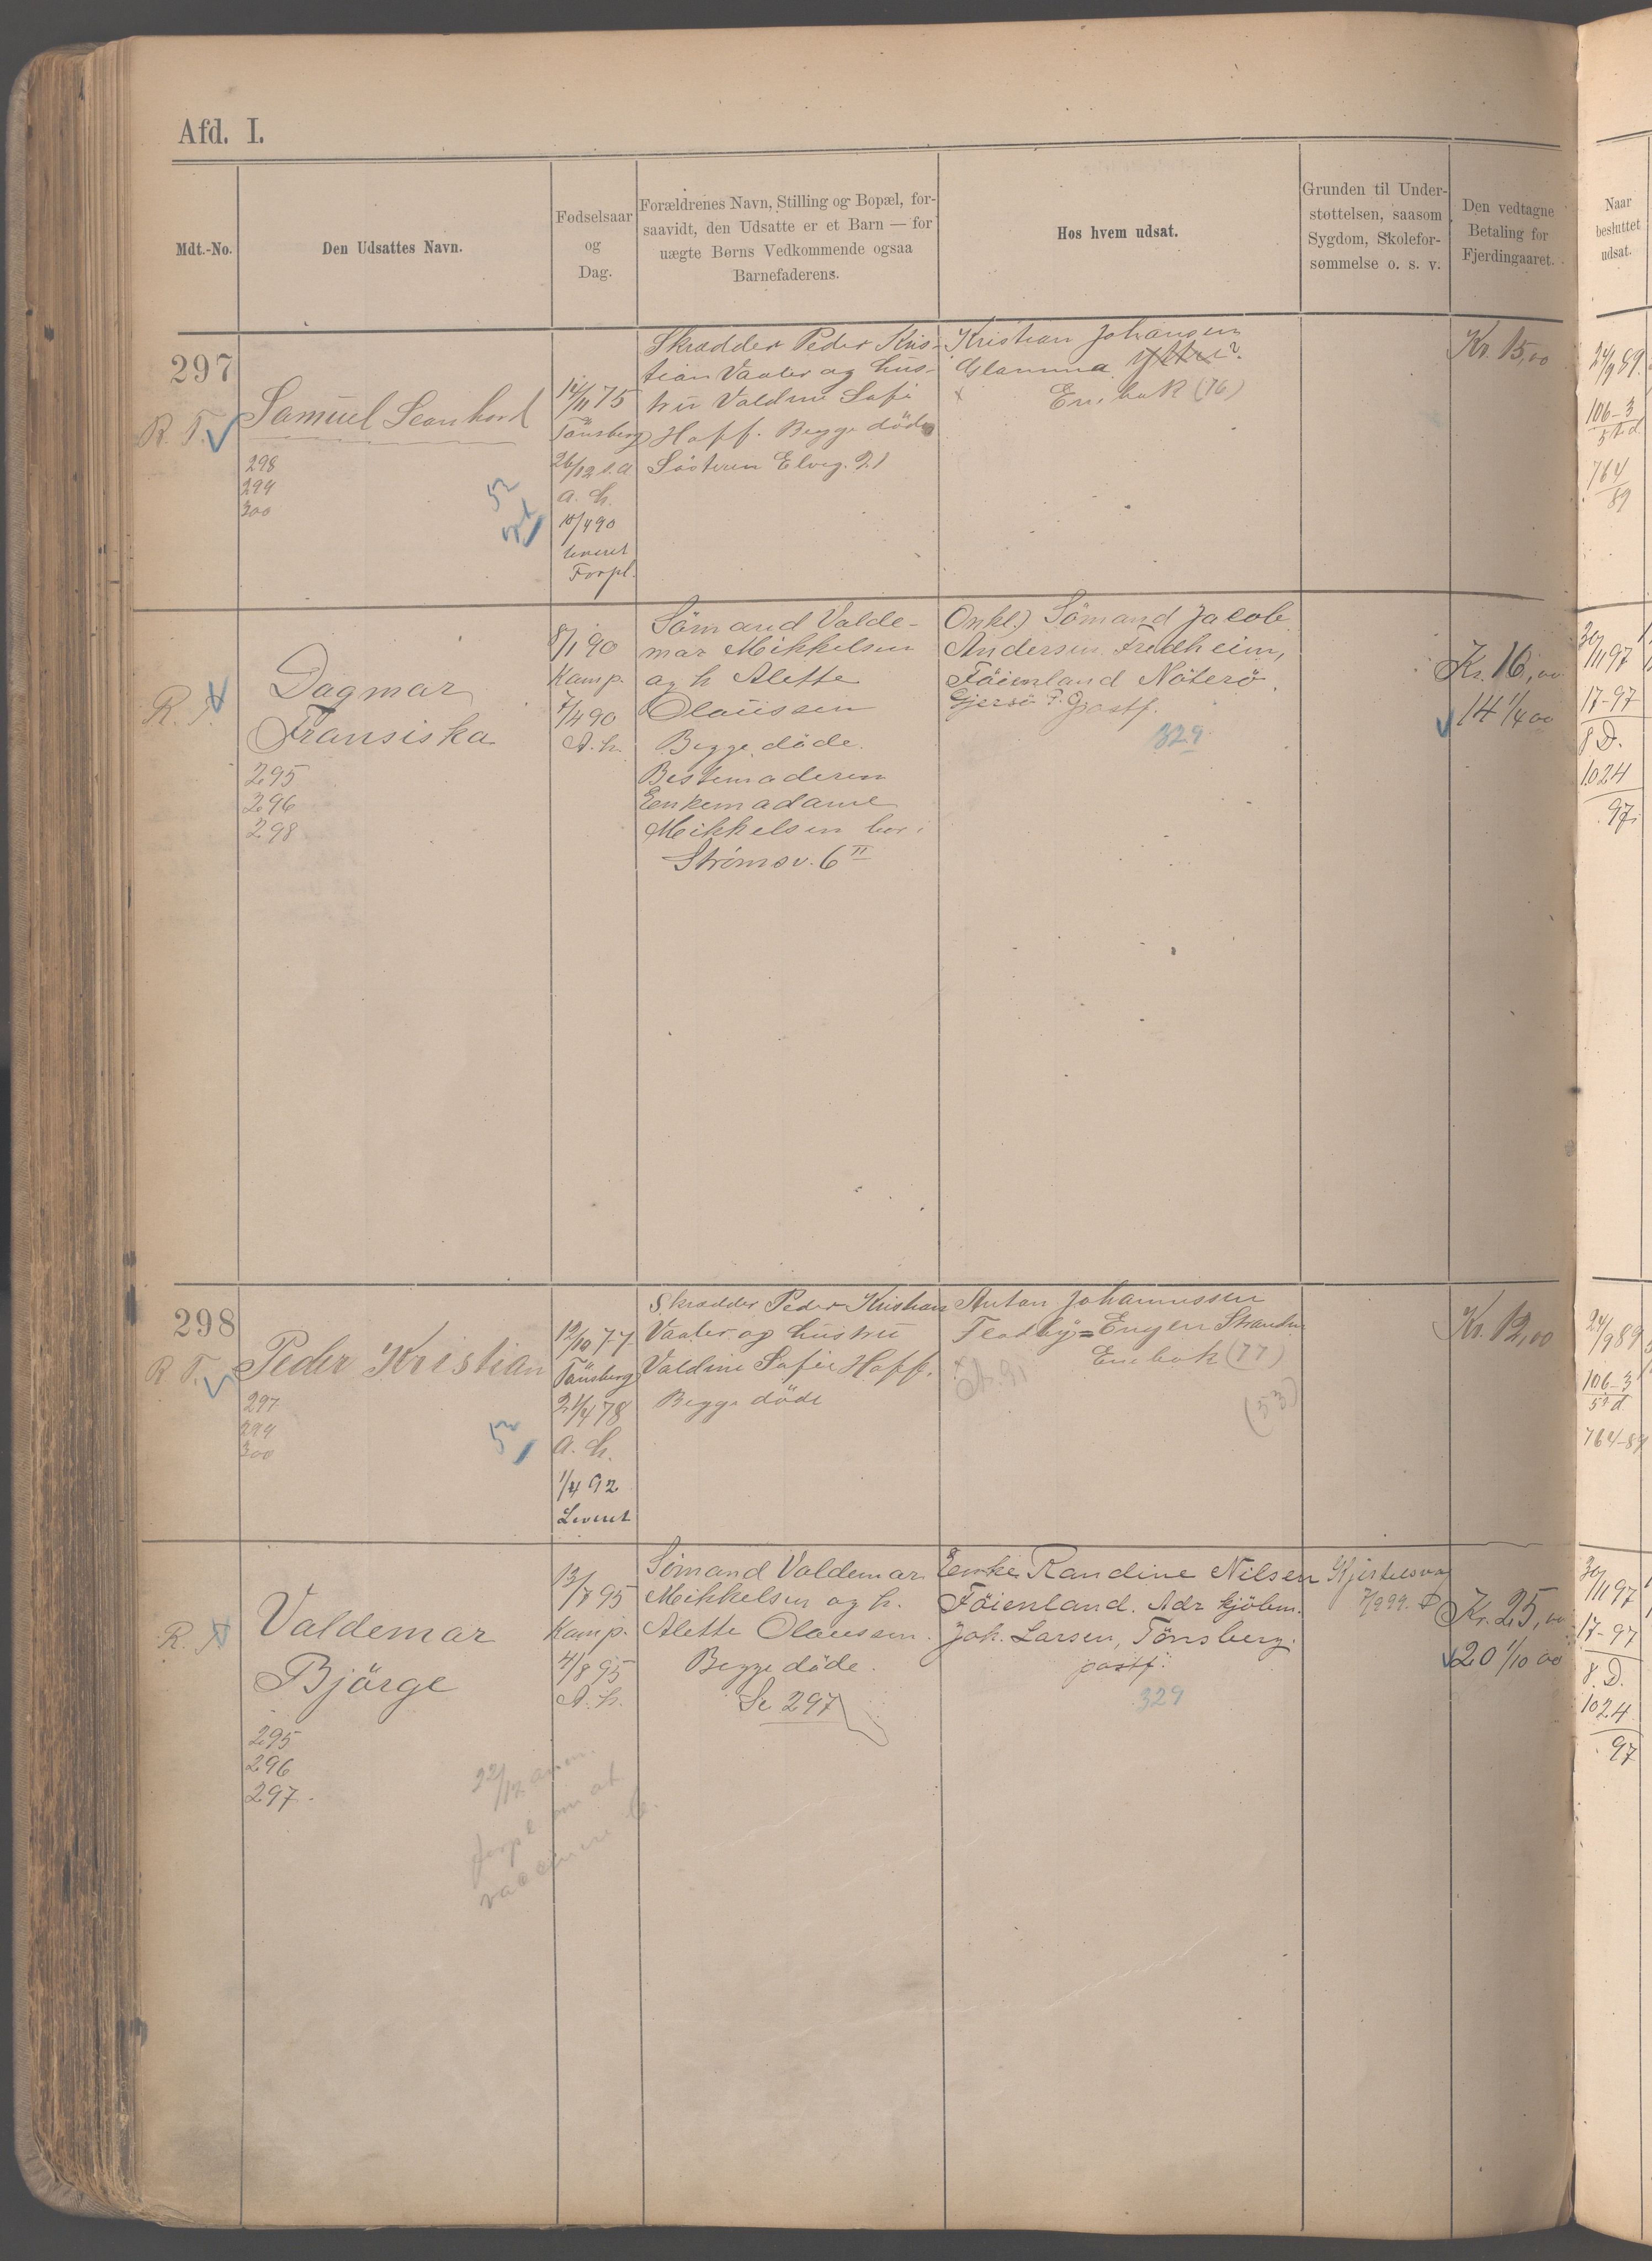 Afd. I.
Mdt.-No.
Den Udsattes Navn.
Fødselsaar
og
Dag.
Forældrenes Navn, Stilling og Bopæl, for-
saavidt, den Udsatte er et Barn — for
uægte Børns Vedkommende ogsaa
Barnefaderens.
Hos hvem udsat.
Grunden til Under-
støttelsen, saasom
Sygdom, Skolefor-
sømmelse o. s. v.
Den vedtagne
Betaling for
Fjerdingaaret.
Naar
besluttet
udsat.
297
R. T.
Samuel Leonhard
298
299
300
14/11 75
Tönsberg
26/12 s.a
a. h.
10/4 90
leveret
Forpl.
Skradder Peder Kris-
tian Vaaler og hus-
tru Valdine Sofi
Hoff. Begge döde
Söstren Elveg. 21
Kristian Johansen
Enebak (76)
Kr. 15,00
24/9 89
106-3
5 A d.
764
89
R. T.
Dagmar
Fransiska
295
296
298
8/1 90
Kamp.
7/4 90
A. h.
Sömand Valde-
mar Mikkelsen
og h Alette
Olaussen
Begge döde.
Bestemoderen
Enkemadame
Mikkelsen bor i
Strömsv. 6 II
Onkel) Sömand Jacob
Andersen Fredheim,
Föienland Nöterö.
Gjersö P. O. postf.
329
Kr. 16,00
14 1/4 00
30/11 97
17-97
8 D.
1024
97
298
R T.
Peder Kristian
297
299
300
12/10 77
Tönsberg
21/4 78
a. h.
1/4 92
Leveret
Skradder Peder Kristian
Vaaler og hustru
Valdine Sofie Hoff.
Begge döde
Anton Johannessen
Flodby=Engen Stranden
Enebak (77)
(53)
Kr. 12,00
24/9 89
106-3
5 A d.
764-89
R. T.
Valdemar
Bjärge
295
296
297.
13/7 95
Kamp.
4/8 95
A. h.
Sömand Valdemar
Mikkelsen og h.
Alette Olaussen.
Begge döde.
Se 297
Enke Randine Nilsen
Föienland. Adr kjöbm.
Joh. Larsen, Tönsberg.
postf.
329
Kjertelsvag
7/9 99. D
Kr. 25,00
20 1/10 00
22/12 anm.
forpl om at
vaccinere b.
30/11 97
17-97
8. D.
1024
97